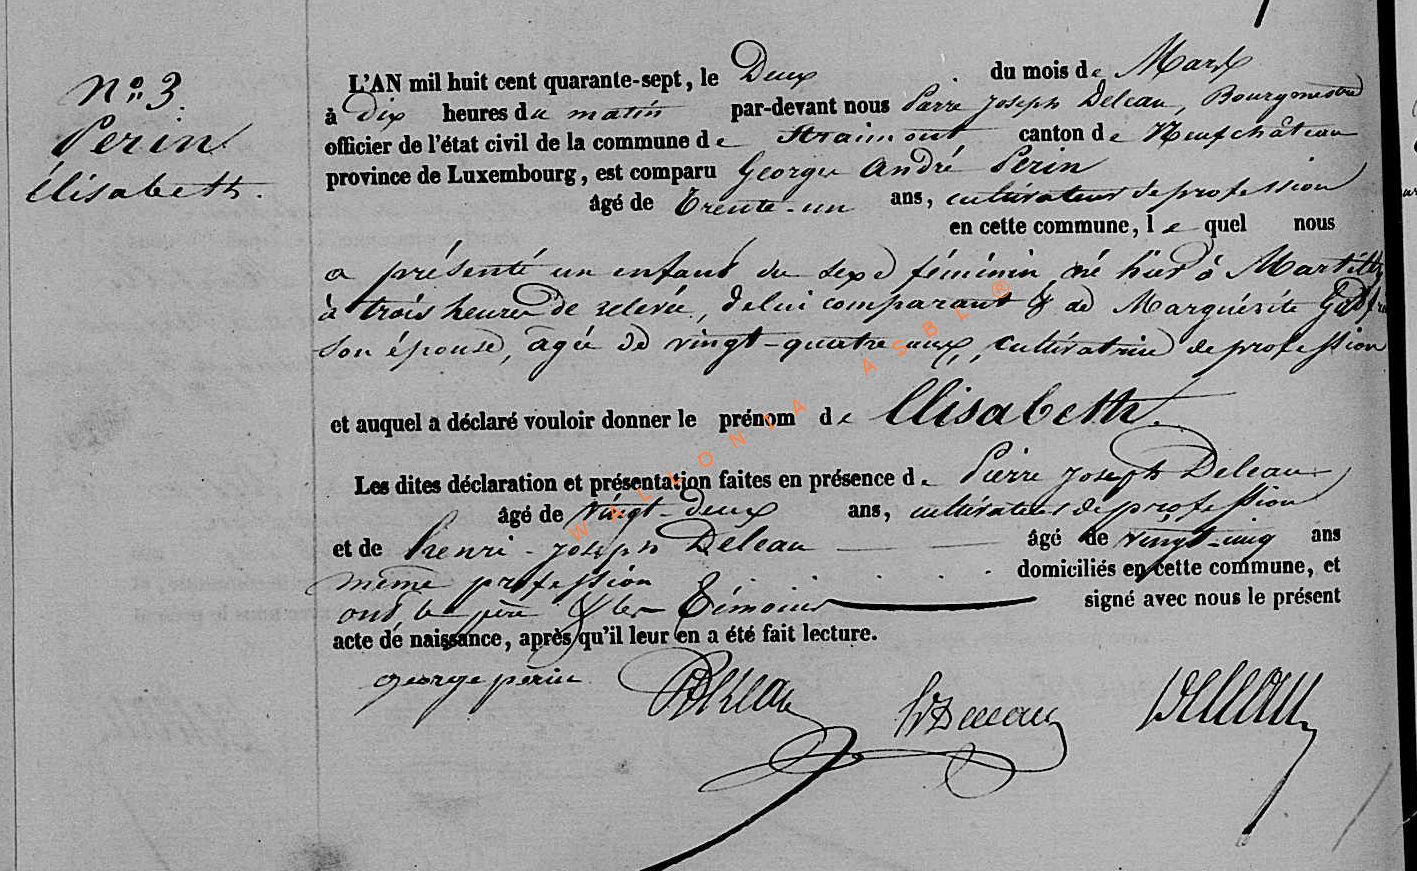 N° 3.
Perin
Elisabeth.
L'AN mil huit cent quarante-sept, le Deux du mois de Mars
à dix heures du matin par-devant nous Pierre Joseph Deleau, Bourgmestre
officier de l'état civil de la commune de Straimont canton de Neufchâteau
province de Luxembourg, est comparu George André Perin
âgé de Trente-un ans, cultivateur de profession
en cette commune, le quel nous
a présenté un enfant du sexe féminin né hier à Martilly
à trois heures de relevée, de lui comparant & de Marguérite
son épouse, agée de vingt-quatre ans, cultivatrice de profession
et auquel a déclaré vouloir donner le prénom de Elisabeth.
Les dites déclaration et présentation faites en présence de Pierre Joseph Deleau
âgé de vingt-deux ans, cultivateur de profession
et de henri-joseph Deleau âgé de vingt-cinq ans
même profession domiciliés en cette commune, et
ont le père & les Témoins signé avec nous le présent
acte de naissance, après qu'il leur en a été fait lecture.
george perin Deleau Deleau Deleau
WALLONIA ASBL ®